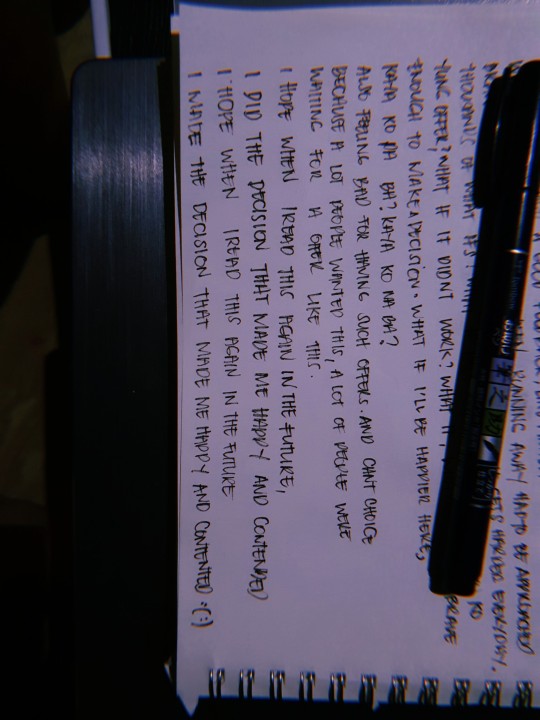 RUNNING AWAY HAD TO BE APPROACHED
GETS HARDER EVERYDAY.
THOUSANDS OF WHAT IFS. KO
YUNG OFFER, WHAT IF IT DIDNT WORK? WHAT IF BRAVE
ENOUGH TO MAKE A DECISION. WHAT IF I'LL BE HAPPIER HERE,
KAYA KO PA BA? KAYA KO NA BA?
ALSO FEELING BAD FOR HAVING SUCH OFFERS. AND CHNT CHOICE
BECAUSE A LOT PEOPLE WANTED THIS, A LOT OF PEOPLE WERE
WAITING FOR A OFFER LIKE THIS.
I HOPE WHEN I READ THIS AGAIN IN THE FUTURE,
I DID THE DECISION THAT MADE ME HAPPY AND CONTENDED
I HOPE WHEN I READ THIS AGAIN IN THE FUTURE
I MADE THE DECISION THAT MADE ME HAPPY AND CONTENTED. (:)